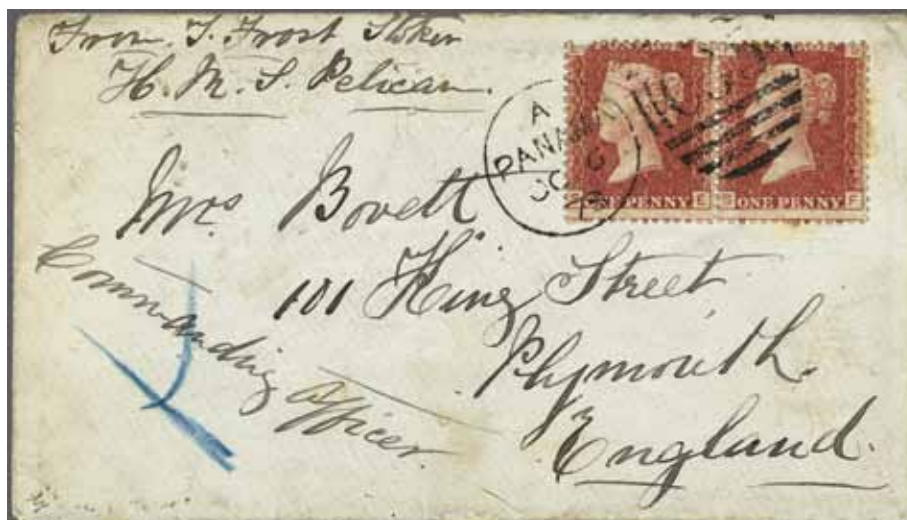 From T. Frost Stoker
H. M. S. Pelican.
A
PANAMA
OC 6
ONE PENNY
ONE PENNY
Mrs Bovett
101 King Street
Plymouth.
England.
Commanding Officer.